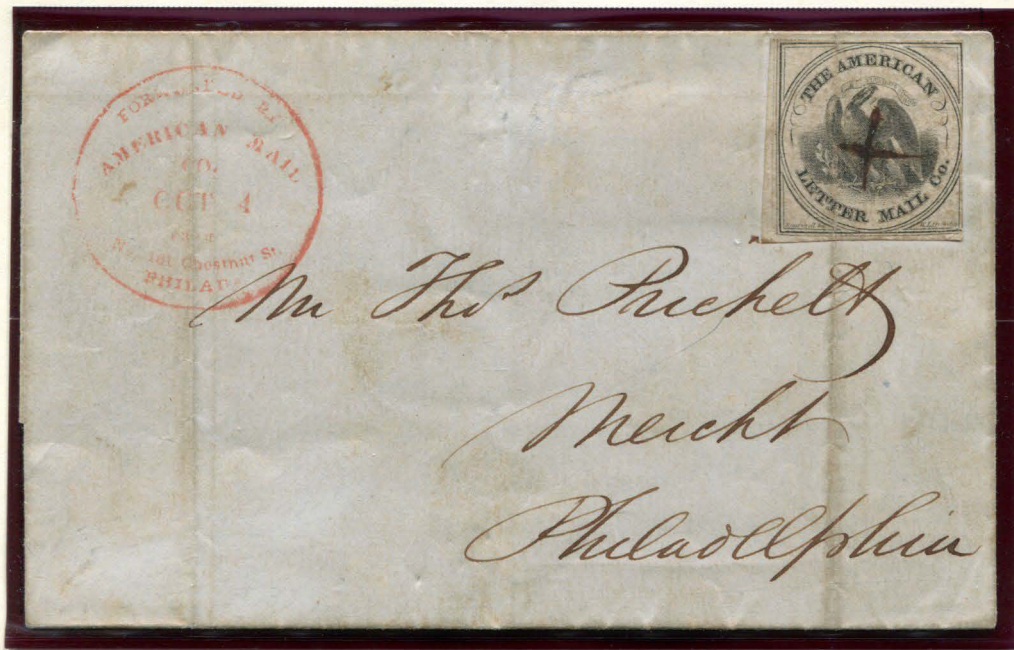 FORWARDED BY
AMERICAN MAIL
CO.
OCT 4
from
No. 101 Chesnut St.
PHILADA
THE AMERICAN
LETTER MAIL CO.
Mr Thos Prichett
Mercht
Philadelphia